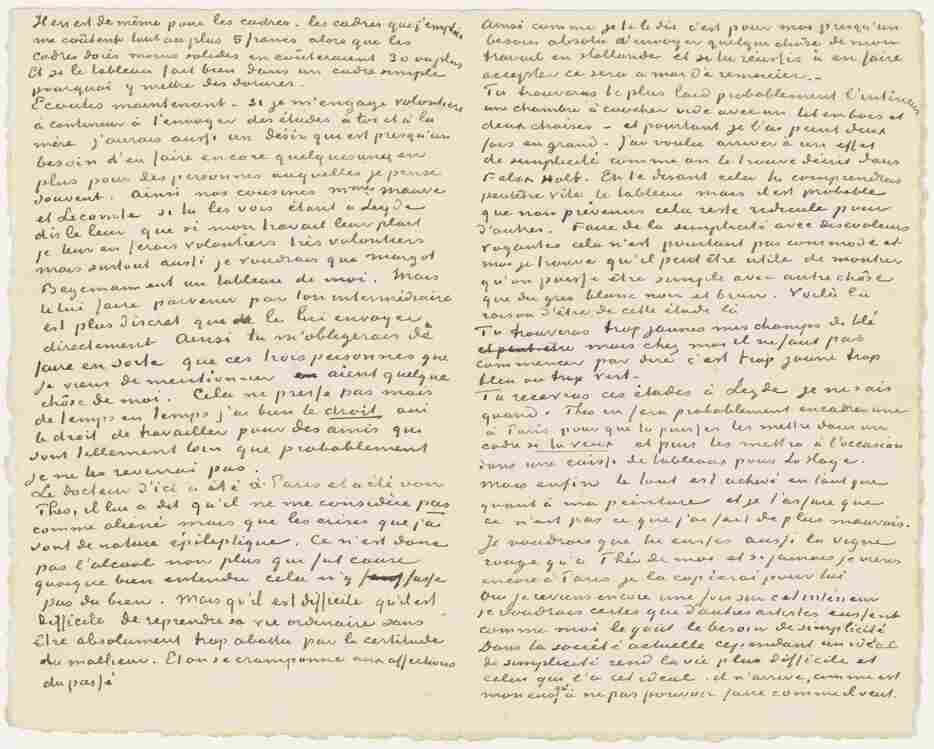 Il en est de même pour les cadres. les cadres que j'emploie
me coûtent tout au plus 5 francs alors que les
cadres dorés moins solides en coûteraient 30 ou plus
Et si le tableau fait bien dans un cadre simple
pourquoi y mettre des dorures.
Ecoutes maintenant. Si je m'engage volontiers
à continuer à t'envoyer des études à toi et à la
mère j'aurais aussi un désir qui est presqu'un
besoin d'en faire encore quelques unes en
plus pour des personnes auquelles je pense
souvent. Ainsi nos cousines mmes Mauve
et Lecomte si tu les vois étant à Leyde
dis le leur que si mon travail leur plait
je leur en ferais volontiers très volontiers
mais surtout aussi je voudrais que Margot
Begemann eut un tableau de moi. Mais
le lui faire parvenir par ton intermédiaire
est plus discret que de le lui envoyer
directement Ainsi tu m'obligerais de
faire en sorte que ces trois personnes que
je viens de mentionner aient quelque
chôse de moi. Cela ne presse pas mais
de temps en temps j'ai bien le droit oui
le droit de travailler pour des amis qui
sont tellement loin que probablement
je ne les reverrai pas.
Le docteur d'ici a été à Paris et a été voir
Theo, il lui a dit qu'il ne me considère pas
comme aliené mais que les crises que j'ai
sont de nature épileptique. Ce n'est donc
pas l'alcool non plus qui fut cause
quoique bien entendu cela n'y fasse
pas du bien. Mais qu'il est difficile qu'il est
difficile de reprendre sa vie ordinaire sans
être absolument trop abattu par la certitude
du malheur. Et on se cramponne aux affections
du passé
Ainsi comme je te le dis c'est pour moi presqu'un
besoin absolu d'envoyer quelque chôse de mon
travail en Hollande et si tu réussis à en faire
accepter ce sera a moi de remercier.
Tu trouveras le plus laid probablement l'intérieur
un chambre à coucher vide avec un lit en bois et
deux chaises – et pourtant je l'ai peint deux
fois en grand. J'ai voulu arriver à un effet
de simplicité comme on le trouve décrit dans
Felix Holt. En te disant cela tu comprendras
peutêtre vite le tableau mais il est probable
que non prévenus cela reste ridicule pour
d'autres. Faire de la simplicité avec des couleurs
voyantes cela n'est pourtant pas commode et
moi je trouve qu'il peut être utile de montrer
qu'on puisse être simple avec autre chôse
que du gris blanc noir et brun. Voilà la
raison d'être de cette étude là
Tu trouveras trop jaunes mes champs de blé
et peut être mais chez moi il ne faut pas
commencer par dire c'est trop jaune trop
bleu ou trop vert.
Tu recevras ces études à Leyde je ne sais
quand. Theo en fera probablement encadrer une
à Paris pour que tu puisses les mettre dans un
cadre si tu veux et puis les mettra à l'occasion
dans une caisse de tableaux pour La Haye.
mais enfin le tout est achevé en tant que
quant à ma peinture et je t'assure que
ce n'est pas ce que j'ai fait de plus mauvais.
Je voudrais que tu eusses aussi la vigne
rouge qu'a Théo de moi et si jamais je viens
encore à Paris je la copierai pour lui
Oui je reviens encore une fois sur cet intérieur
je voudrais certes que d'autres artistes eussent
comme moi le goût le besoin de simplicité
Dans la société actuelle cependant un idéal
de simplicité rend la vie plus difficile et
celui qui l'a cet idéal. il n'arrive, comme est
mon cas, à ne pas pouvoir faire comme il veut.